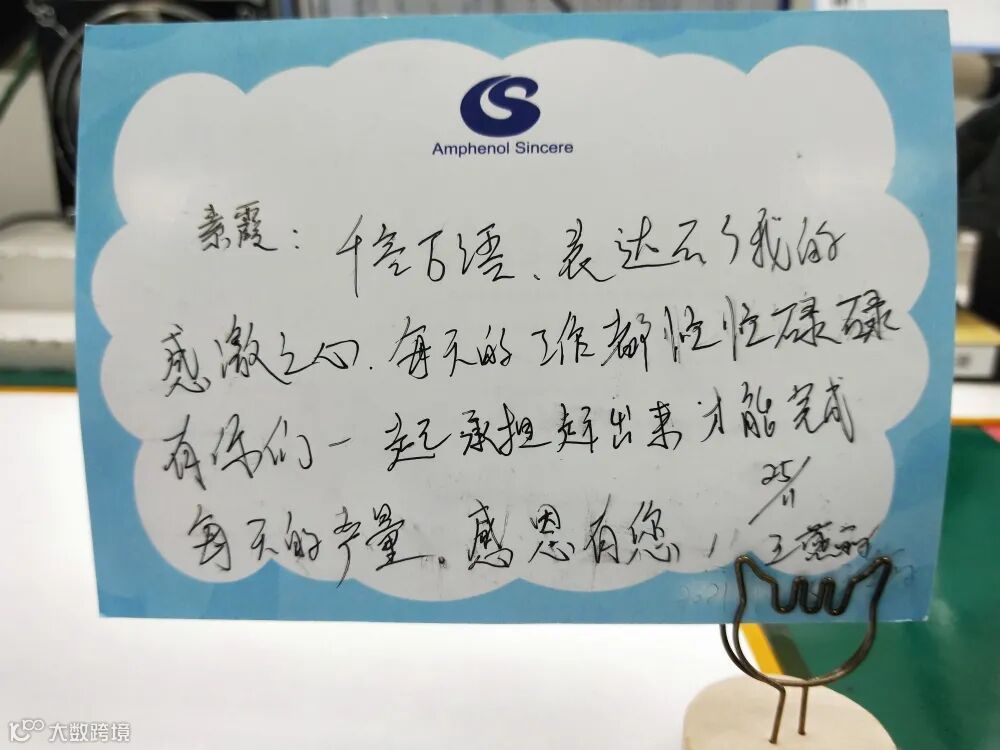 Amphenol Sincere
素霞：千言万语、表达不了我的
感激之心.每天的工作都忙忙碌碌
有你们一起承担赶出来才能完成
25/11
每天的产量.感恩有您！
大数跨境